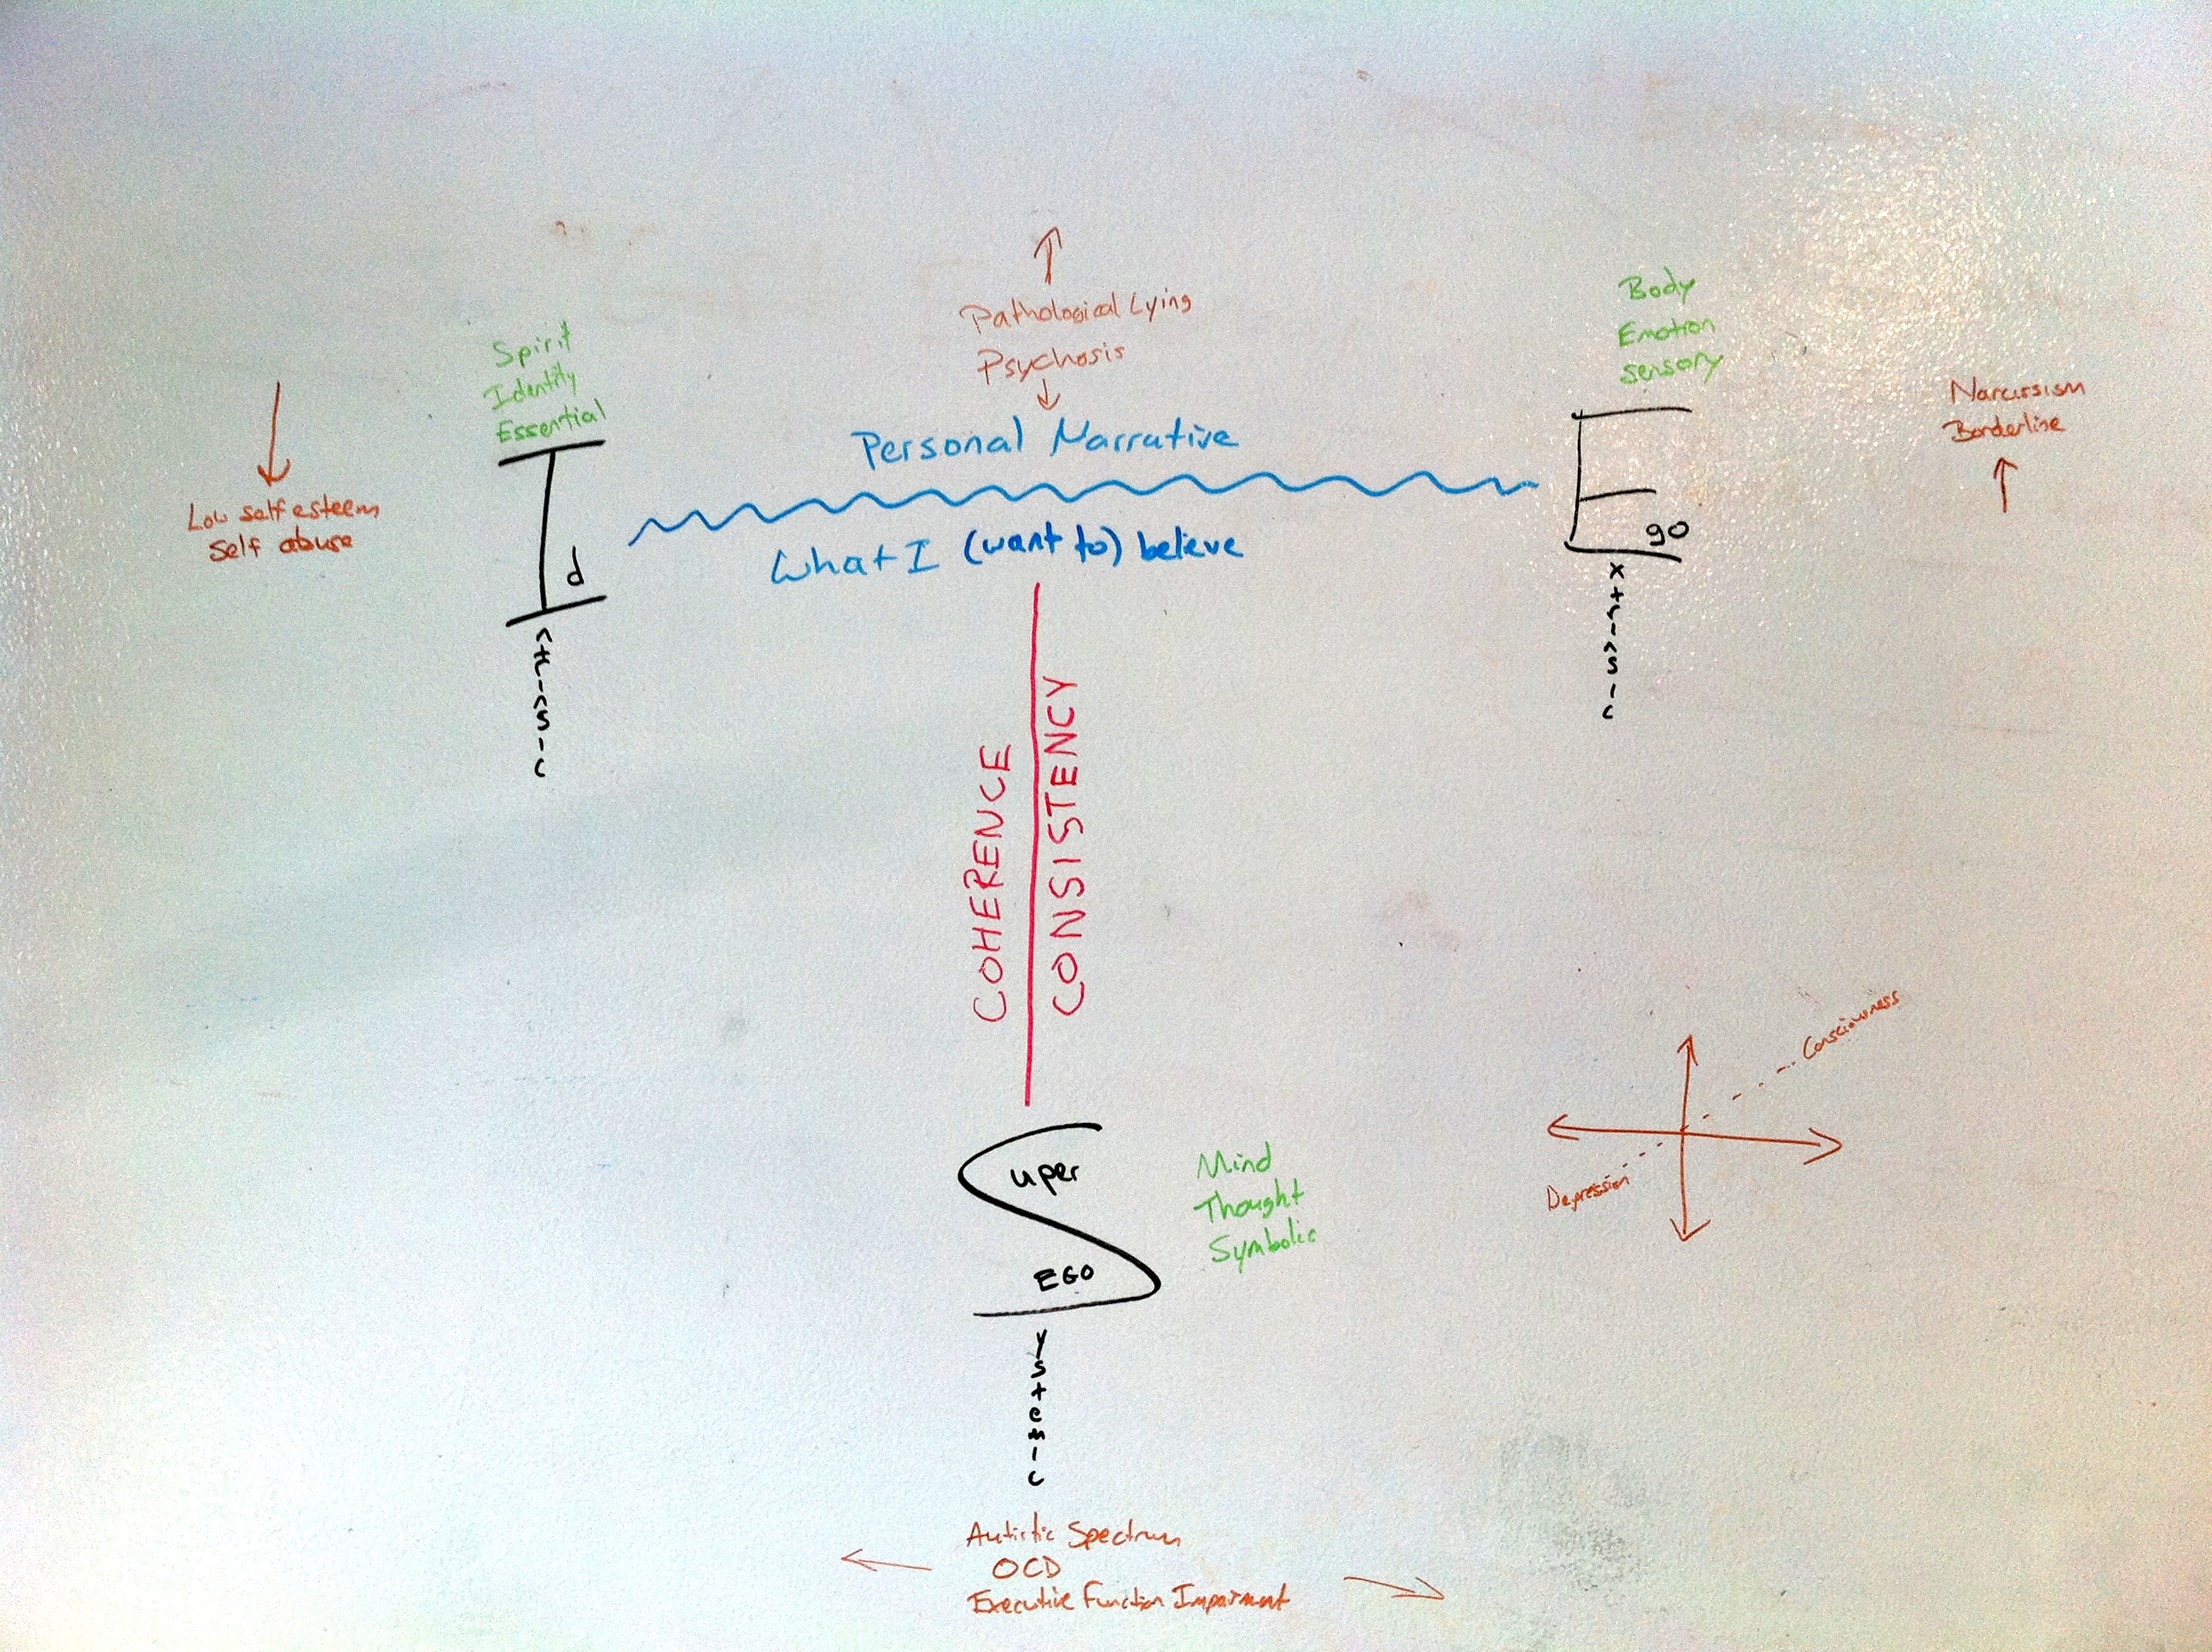 Pathological Lying
Psychosis
Personal Narrative
What I (want to) believe
Spirit
Identity
Essential
Id
Intrinsic
Low self esteem
Self abuse
Body
Emotion
Sensory
Ego
Extrinsic
Narcissism
Borderline
COHERENCE
CONSISTENCY
Super
EGO
Systemic
Mind
Thought
Symbolic
Consciousness
Depression
Autistic Spectrum
OCD
Executive Function Impairment